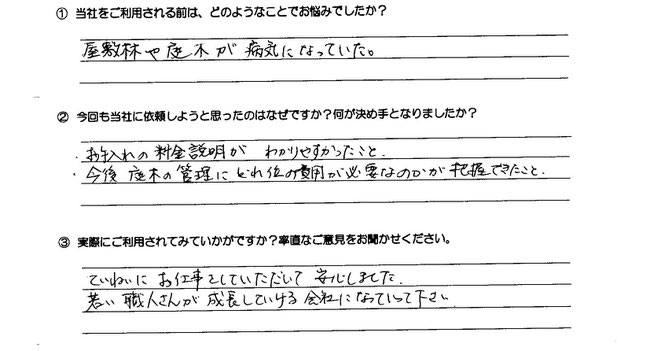 ① 当社をご利用される前は、どのようなことでお悩みでしたか?
屋敷林や庭木が病気になっていた。
② 今回も当社に依頼しようと思ったのはなぜですか?何が決め手となりましたか?
・お手入れの料金説明が わかりやすかったこと.
・今後 庭木の管理にどれ位の費用が必要なのかが把握できたこと.
③ 実際にご利用されてみていかがですか?率直なご意見をお聞かせください。
ていねいに お仕事をしていただいて 安心しました.
若い職人さんが成長していける会社になっていって下さい